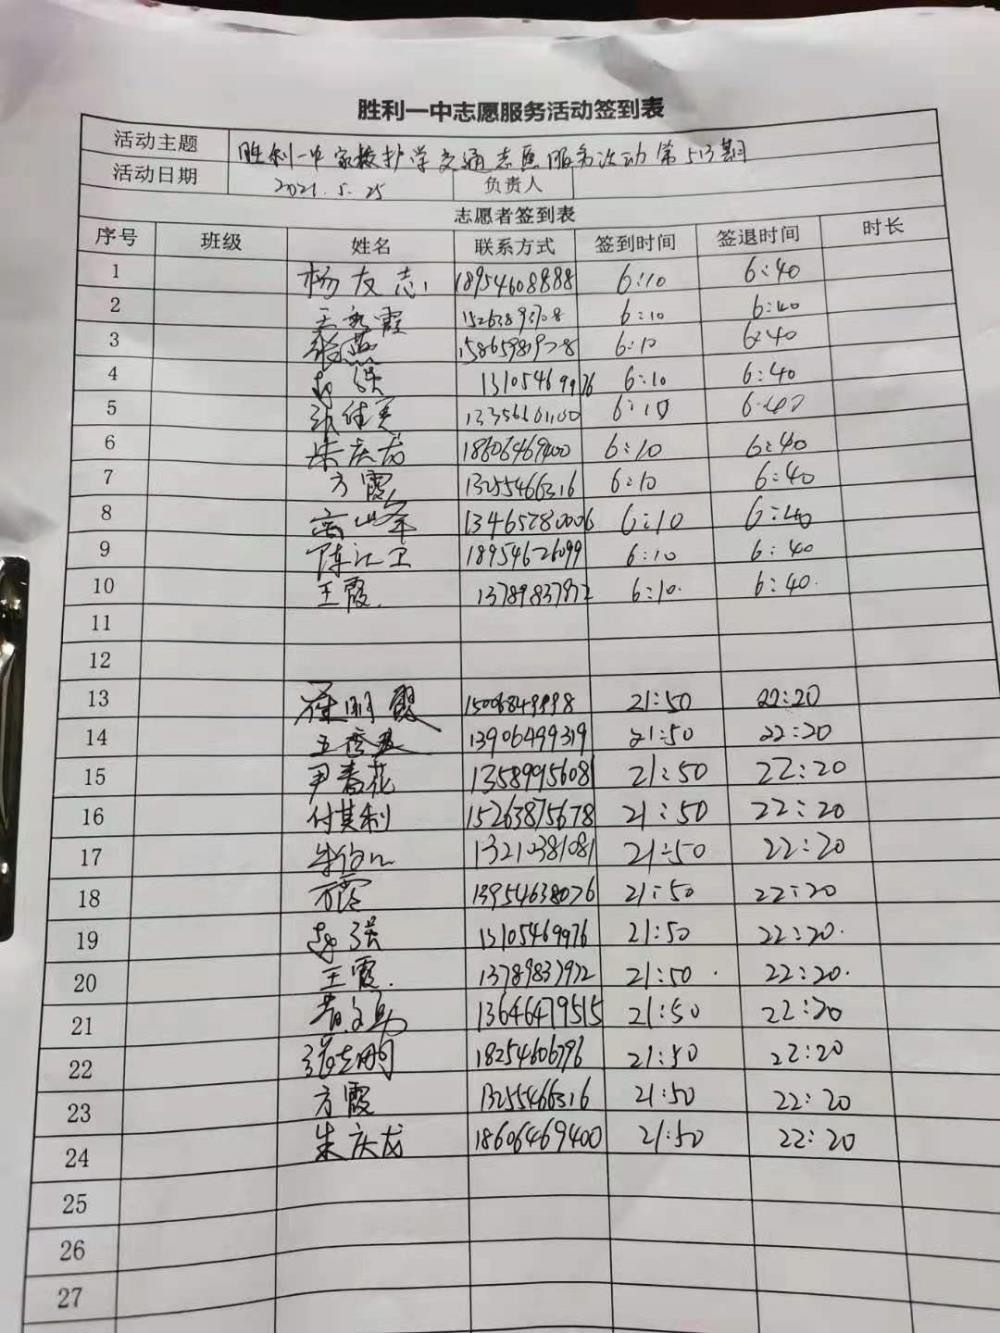 胜利一中志愿服务活动签到表
活动主题 胜利一中家校护学交通志愿服务活动第513期
活动日期 2021.5.25 负责人
志愿者签到表
序号 班级 姓名 联系方式 签到时间 签退时间 时长
1 杨友志 18954608888 6:10 6:40
2 6:10 6:40
3 6:10 6:40
4 赵强 13105469976 6:10 6:40
5 6:10 6:40
6 朱庆龙 18606469400 6:10 6:40
7 方霞 13255466316 6:10 6:40
8 13465280006 6:10 6:40
9 陈汇卫 18954626099 6:10 6:40
10 王霞. 13789837972 6:10. 6:40.
11
12
13 15006849998 21:50 22:20
14 13906499319 21:50 22:20
15 尹春花 13589956081 21:50 22:20
16 付其利 15263875678 21:50 22:20
17 21:50 22:20
18 13954638076 21:50 22:20
19 赵强 13105469976 21:50 22:20.
20 王霞. 13789837972 21:50. 22:20.
21 13646479515 21:50 22:20
22 18254606796 21:50 22:20
23 方霞 13255466316 21:50 22:20
24 朱庆龙 18606469400 21:50 22:20
25
26
27